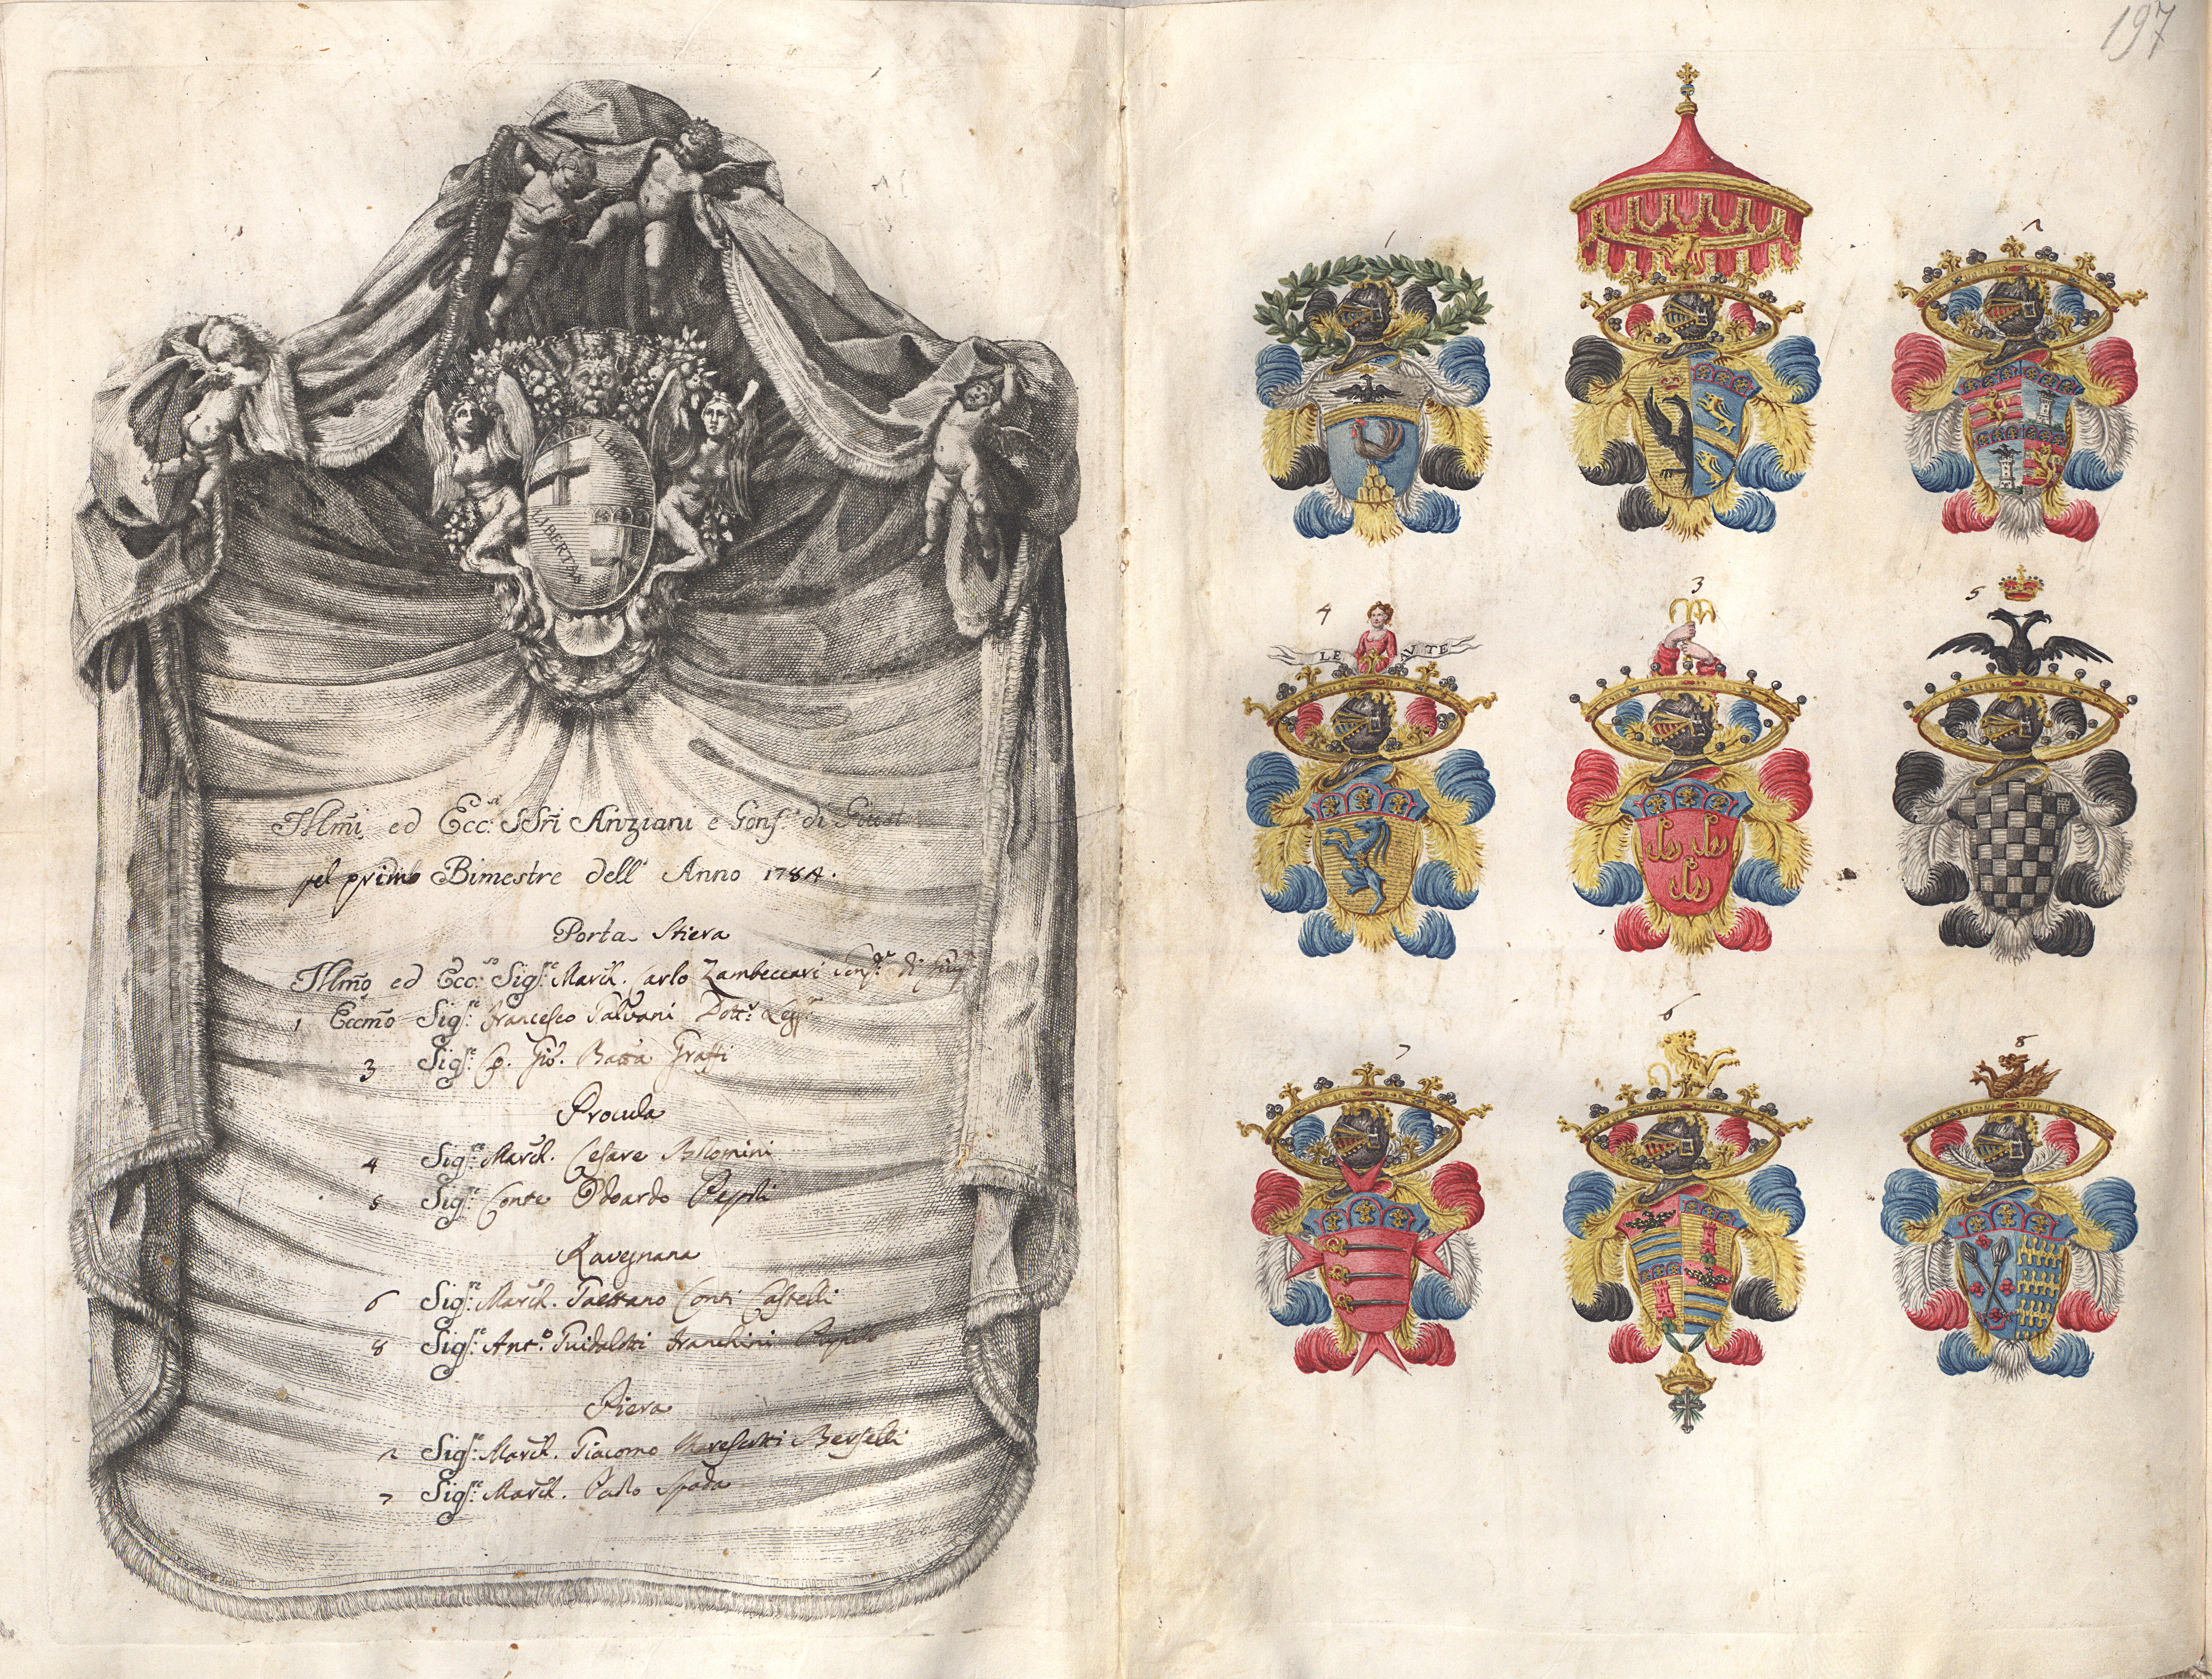 197
LIBERTAS
LIBERTAS
Illmi ed Ecc:si SSri Anziani e Gonf:ri di Giust
pel primo Bimestre dell' Anno 1784.
Porta Stiera
Illmo ed Ecc:so Sig:re March. Carlo Zambeccari Gonf:re di Giu
1 Eccmo Sig:re Francesco Galvani Dott:r Legg:
3 Sig:re Co. Gio. Batta Grassi
Procula
4 Sig:re March. Cesare
5 Sig:re Conte Odoardo Pepoli
Ravegnana
6 Sig:re March. Gaettano Conti Castelli
8 Sig:re Ant:o Guidalotti Franchini
Piera
2 Sig:re March. Giacomo Marescotti Berselli
7 Sig:re March. Paolo Spada
1
2
4
LEAVTE
3
5
7
6
8